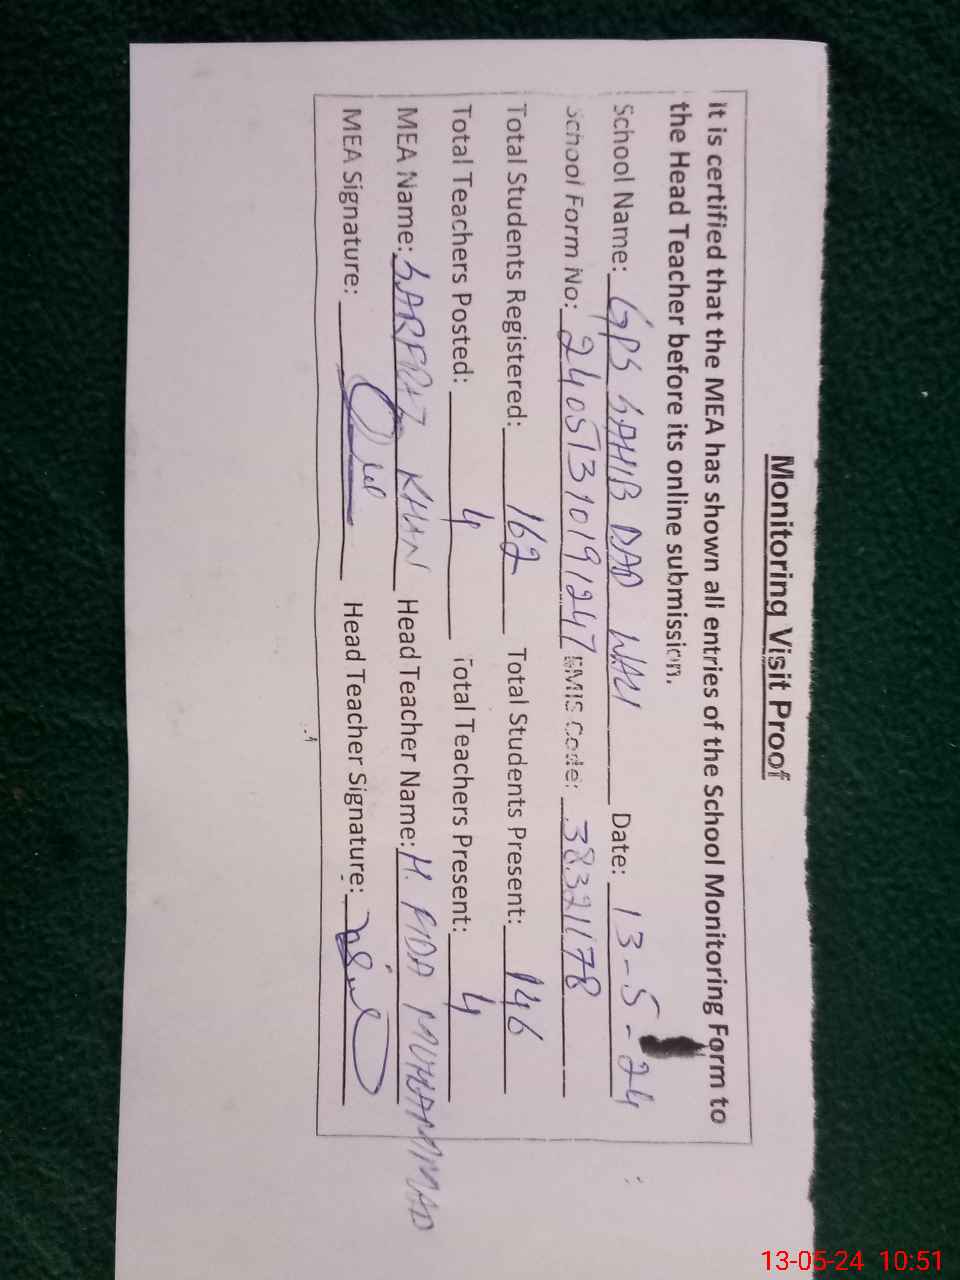 Monitoring Visit Proof
It is certified that the MEA has shown all entries of the School Monitoring Form to
the Head Teacher before its online submission.
School Name: GPS SAHIB DAD WALI Date: 13-5-24
School Form No: 24051310191247 EMIS Code: 38321178
Total Students Registered: 162 Total Students Present: 146
Total Teachers Posted: 4 Total Teachers Present: 4
MEA Name: SARFRAZ KHAN Head Teacher Name: H. FIDA MUHAMMAD
MEA Signature: Head Teacher Signature:
13-05-24 10:51